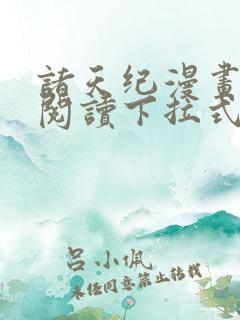 諸天纪漫畫
閱讀下拉式
吕小佩
未经同意禁止转载